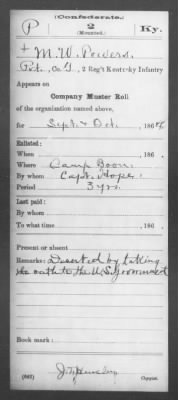 (Confederate.)
P 2 Ky.
(Mounted.)
+ M. W. Powers.
Pvt., Co. I, 2 Reg't Kentucky Infantry
Appears on
Company Muster Roll
of the organization named above,
for Sept & Oct, 1864.
Enlisted:
When , 186 .
Where Camp Boon.
By whom Capt. Hope.
Period 3 yrs.
Last paid:
By whom
To what time , 186 .
Present or absent
Remarks: Deserted by taking
the oath to the U.S. government
Book mark:
(642) Copyist.